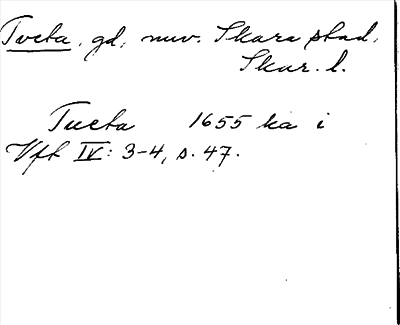 Tveta, gd, nuv. Skara stad,
Skar. l.
Tueta 1655 ka i
Vft IV: 3-4, s. 47.